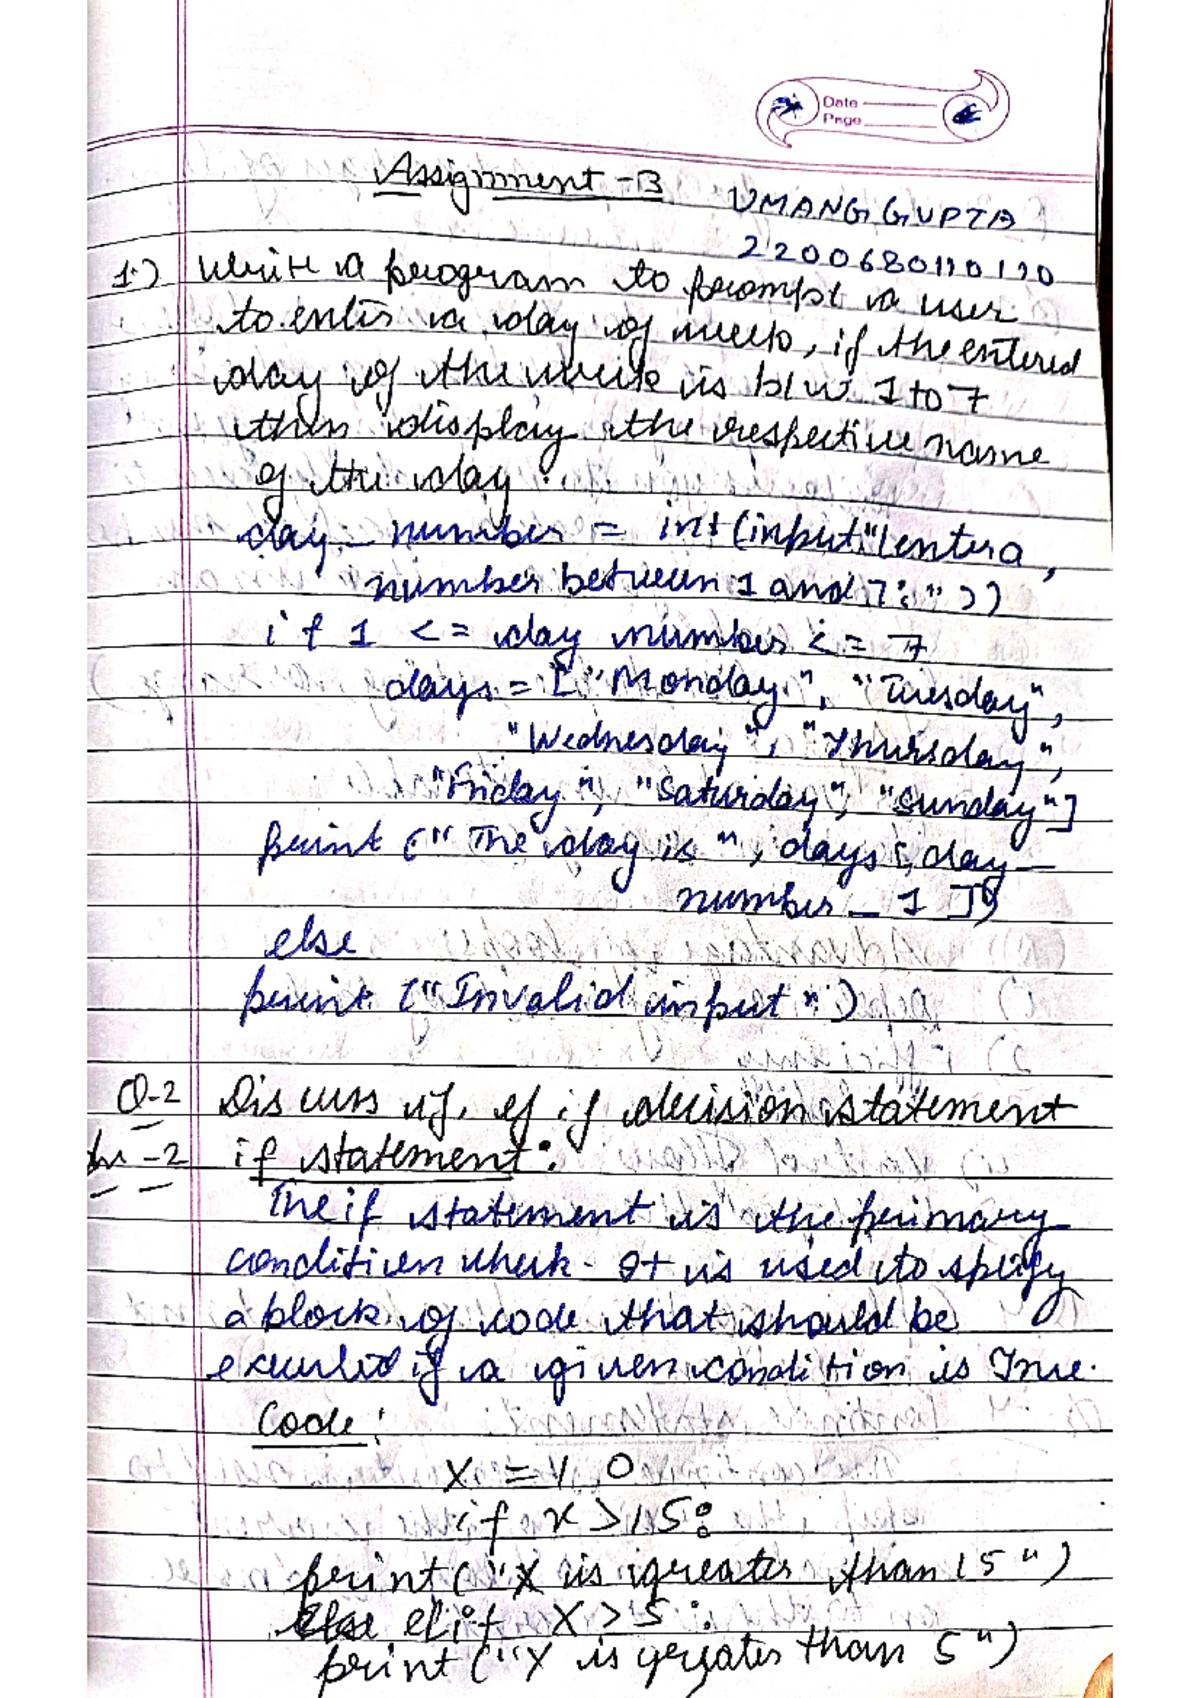 Date
Page
Assignment - B
UMANG GUPTA
2200680110190
1.) Write a program to prompt a user
to enter a day of week, if the entered
day of the week is b/w 1 to 7
then display the respective name
of the day.
day_number = int(input("enter a
number between 1 and 7: "))
if 1 <= day number <= 7
days = ["Monday", "Tuesday",
"Wednesday", "Thursday",
"Friday", "Saturday", "Sunday"]
print ("The day is", days[day_
number - 1])
else
print ("Invalid input")
Q-2 Discuss of if decision statement
-2 if statement:
The if statement is the primary
condition check. It is used to specify
a block of code that should be
executed if a given condition is True.
Code:
X = 10
if x > 15:
print("X is greater than 15")
elif X > 5:
print("X is greater than 5")